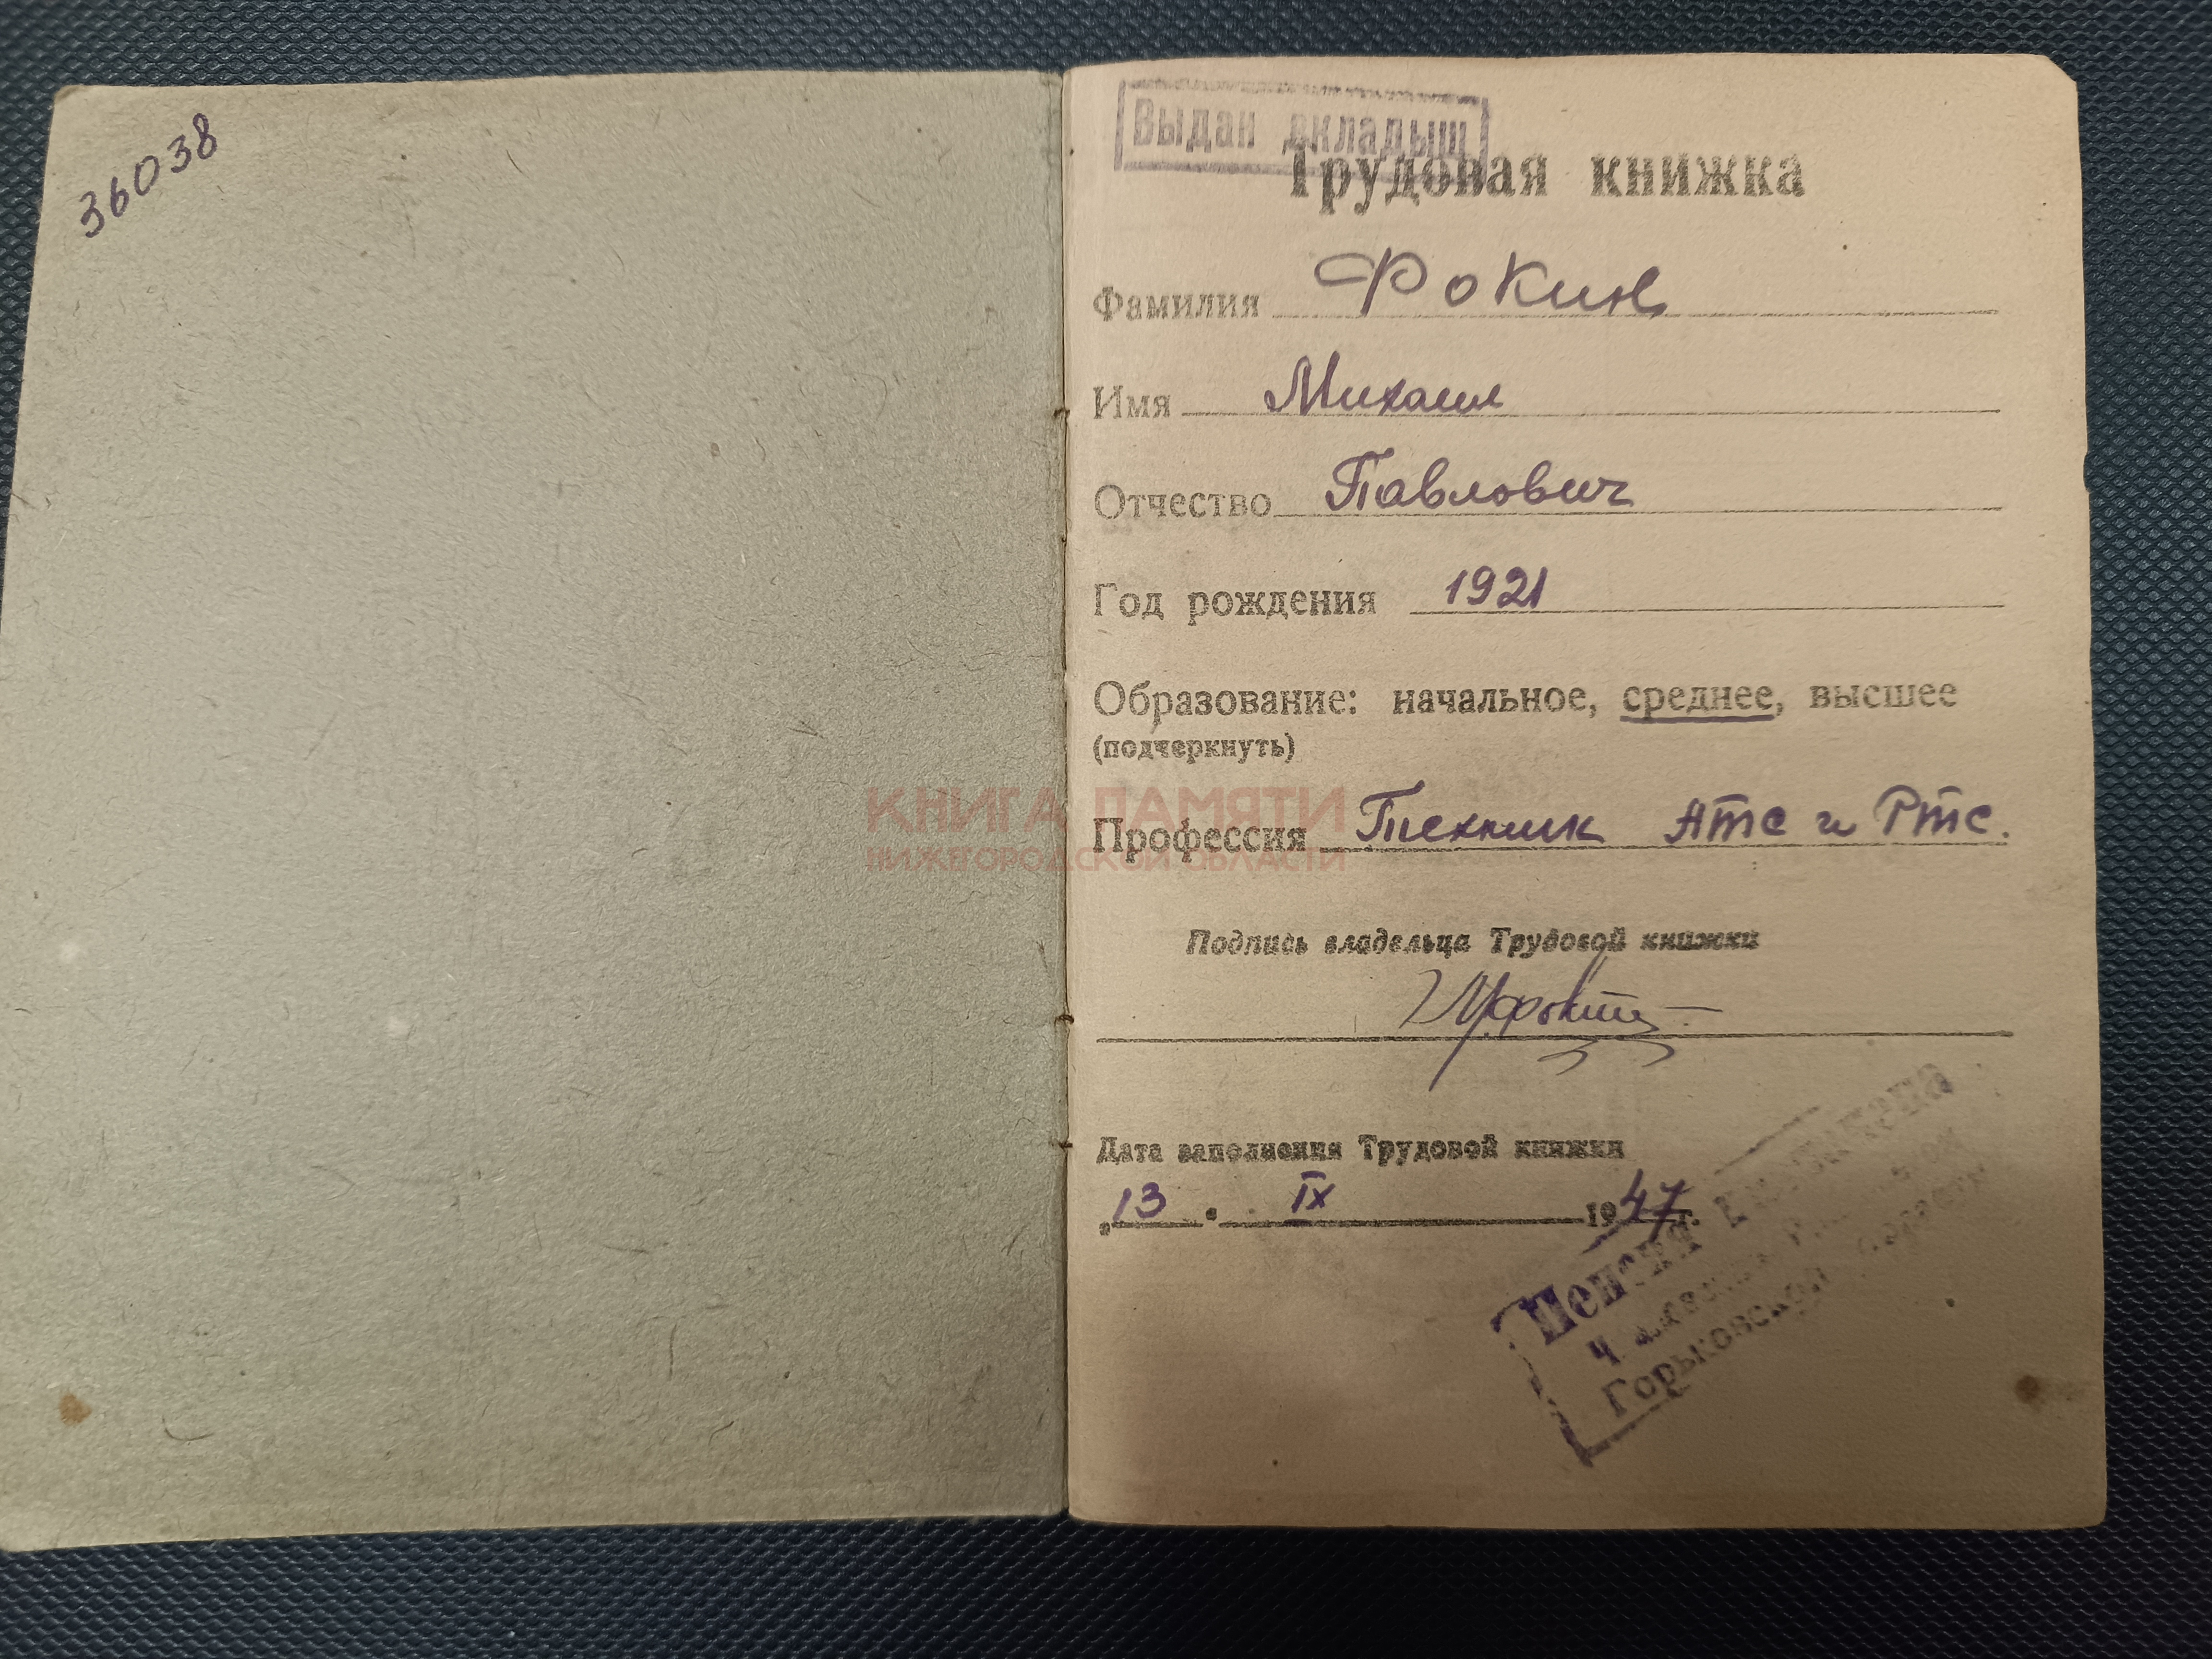 36038
Выдан вкладыш
Трудовая книжка
Фамилия Фокин
Имя Михаил
Отчество Павлович
Год рождения 1921
Образование: начальное, среднее, высшее
(подчеркнуть)
КНИГА ПАМЯТИ
НИЖЕГОРОДСКОЙ ОБЛАСТИ
Профессия Техник АТС и РТС.
Подпись владельца Трудовой книжки
Дата заполнения Трудовой книжки
"13" IX 1947 г.
Пенсия
Горьковской области